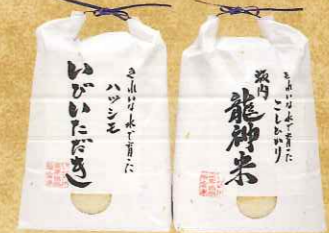 きれいな水で育った
ハツシモ
いびいただき
きれいな水で育った
こしひかり
坂内
龍神米